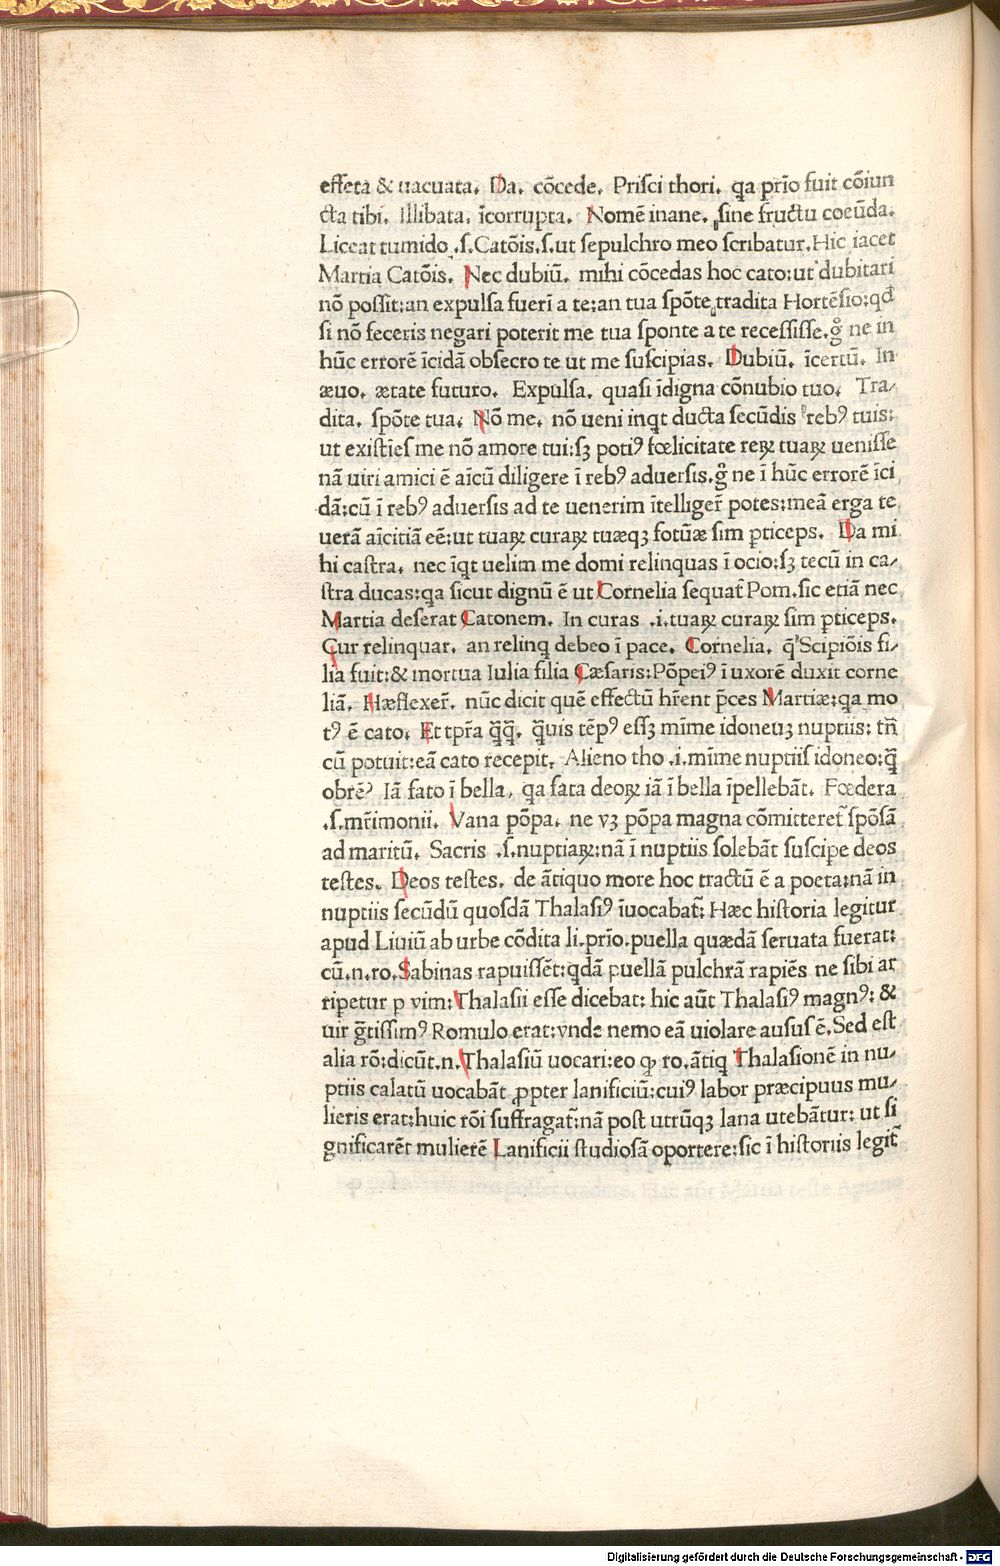 effeta & uacuata. Da. cōcede. Prisci thori. qa prīo fuit cōiun
cta tibi. Illibata. īcorrupta. Nomē inane. sine fructu coeūda.
Liceat tumido .ſ. Catōis.ſ.ut ſepulchro meo ſcribatur. Hic iacet
Martia Catōis. Nec dubiū. mihi cōcedas hoc cato:ut dubitari
nō poſſit:an expulſa fuerī a te:an tua ſpōte tradita Hortēſio:qđ
ſi nō feceris negari poterit me tua ſponte a te receſſiſſe.g̊ ne in
hūc errorē īcidā obſecro te ut me ſuſcipias. Dubiū. īcertū. In
æuo. ætate futuro. Expulſa. quaſi īdigna cōnubio tuo. Tra/
dita. ſpōte tua. Nō me. nō ueni inqt ducta ſecūdis rebꝰ tuis:
ut exiſtīes me nō amore tui:ſꝫ potiꝰ fœlicitate reꝝ tuaꝝ ueniſſe
nā uiri amici ē aīcū diligere ī rebꝰ aduerſis.g̊ ne ī hūc errorē īci
dā:cū ī rebꝰ aduerſis ad te uenerim ītelliger̄ potes:meā erga te
uerā aīcitiā eē:ut tuaꝝ curaꝝ tuæqꝫ fotūæ ſim ꝑticeps. Da mi
hi caſtra. nec īqt uelim me domi relinquas ī ocio:ſꝫ tecū in ca/
ſtra ducas:qa ſicut dignū ē ut Cornelia ſequat̄ Pom.ſic etiā nec
Martia deſerat Catonem. In curas .i.tuaꝝ curaꝝ ſim ꝑticeps.
Cur relinquar. an relinq debeo ī pace. Cornelia. q̄ Scipiōis fi/
lia fuit:& mortua Iulia filia Cæſaris:Pōpeiꝰ ī uxorē duxit corne
liā. Hæflexer̄. nūc dicit quē effectū hr̄ent p̄ces Martiæ:qa mo
tꝰ ē cato. Et tpr̄a q̄q̄. q̄uis tēpꝰ eſſꝫ mīme idoneuꝫ nuptiis: tn̄
cū potuit:eā cato recepit. Alieno tho .i.mīme nuptiiſ idoneo:q̄
obrēꝰ Iā fato ī bella. qa fata deoꝝ iā ī bella īpellebāt. Fœdera
.ſ.mr̄imonii. Vana pōpa. ne vꝫ pōpa magna cōmitteret̄ ſpōſā
ad maritū. Sacris .ſ.nuptiaꝝ:nā ī nuptiis ſolebāt ſuſcipe deos
teſtes. Deos teſtes. de ātiquo more hoc tractū ē a poeta:nā in
nuptiis ſecūdū quoſdā Thalaſiꝰ īuocabat̄: Hæc hiſtoria legitur
apud Liuiū ab urbe cōdita li.prīo.puella quædā ſeruata fuerat:
cū.n.ro.Sabinas rapuiſſēt:qdā puellā pulchrā rapiēs ne ſibi ar
ripetur ꝑ vim:Thalaſii eſſe dicebat: hic aūt Thalaſiꝰ magnꝰ: &
uir g̅tiſſimꝰ Romulo erat:vnde nemo eā uiolare auſuſ ē. Sed eſt
alia rō:dicūt.n.Thalaſiū uocari:eo ꝙ ro.ātiq Thalaſionē in nu/
ptiis calatū uocabāt ꝓpter lanificiū:cuiꝰ labor præcipuus mu/
lieris erat:huic rōi ſuffragat̄:nā poſt utrūqꝫ lana utebātur: ut ſi
gnificarēt mulierē Lanificii ſtudioſā oportere:ſic ī hiſtoriis legit̄
Digitalisierung gefördert durch die Deutsche Forschungsgemeinschaft - DFG